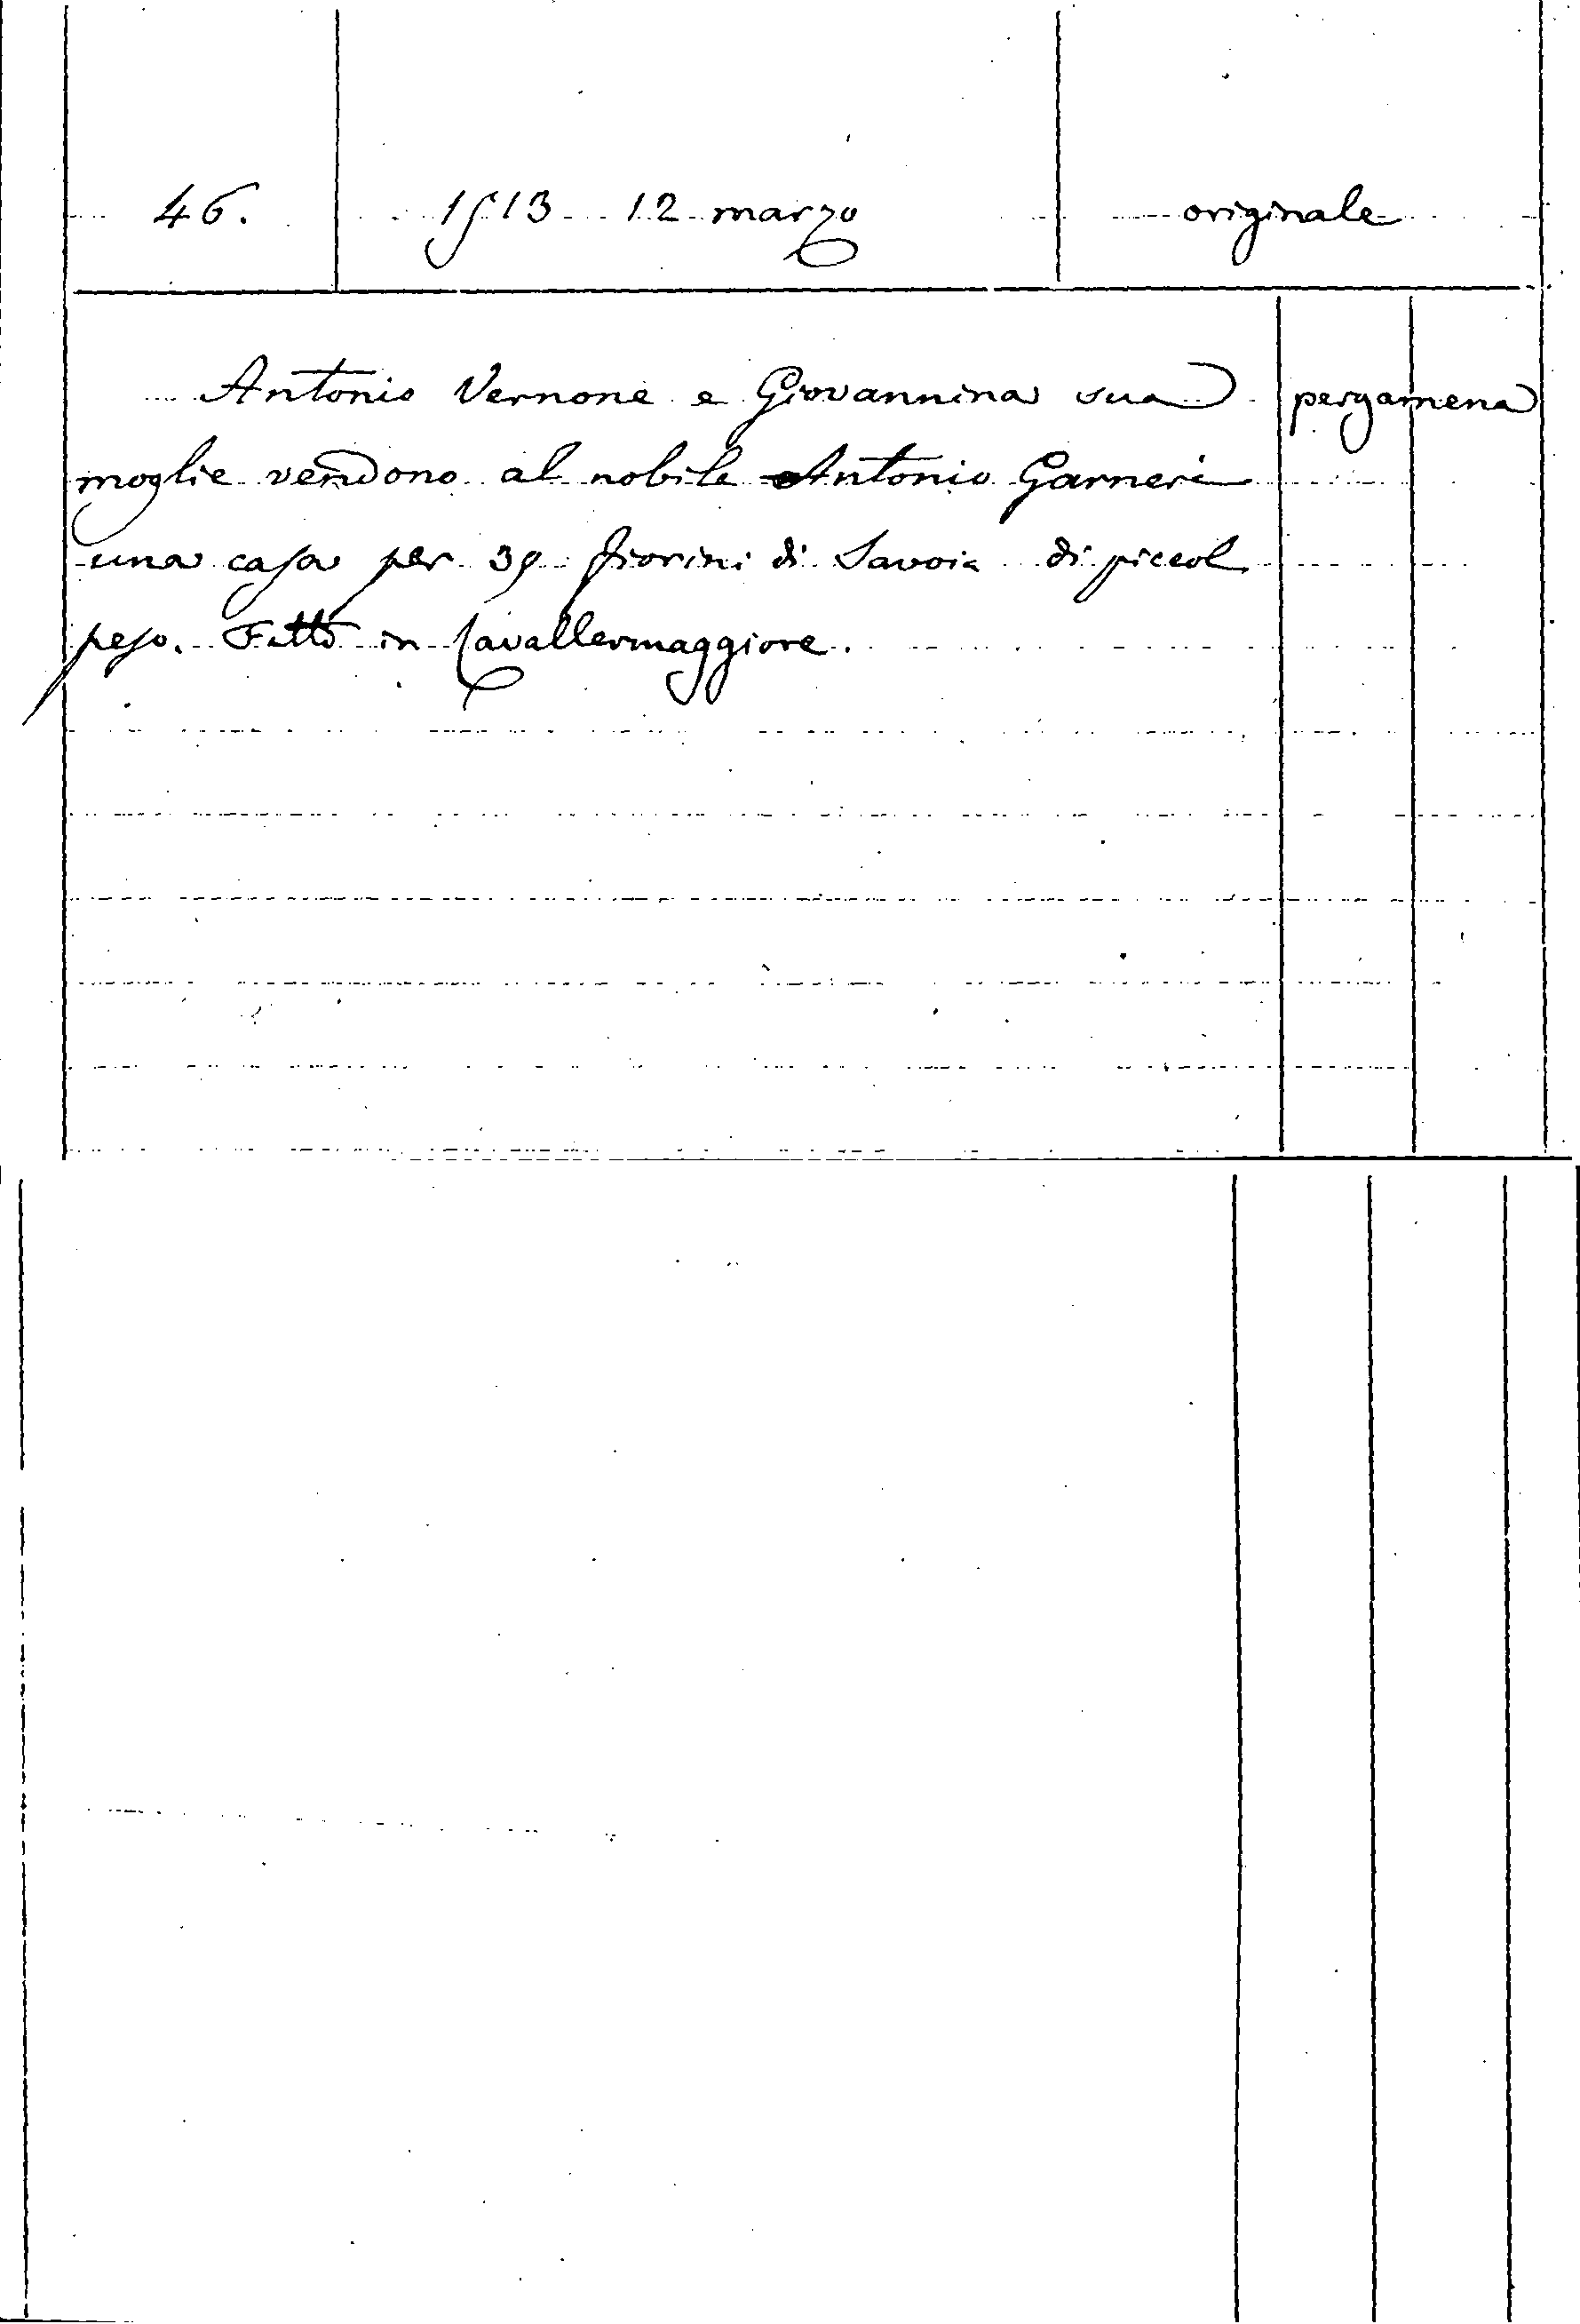 46. 1513 12 marzo originale
Antonio Vernone e Giovannina sua pergamena
moglie vendono al nobile Antonio Garneri
una casa per 39 fiorini di Savoia di piccol
peso. Fatto in Cavallermaggiore.